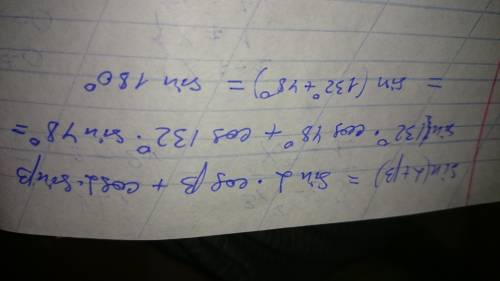 sin(α+β) = sin α · cos β + cos α · sin β
sin 132° · cos 48° + cos 132° · sin 48° =
= sin (132° + 48°) = sin 180°